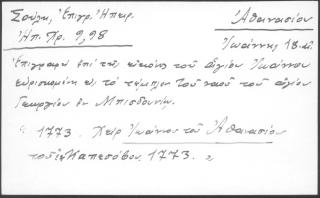 Σούλη, Ἐπιγρ. Ἠπειρ. Ἀθανασίου
Ἠπ. Χρ. 9, 98 Ἰωάννης 18 αἰ.
Ἐπιγραφὴ ἐπὶ τῆς εἰκόνος τοῦ ἁγίου Ἰωάννου
εὑρισκομένη εἰς τὸ τέμπλον τοῦ ναοῦ τοῦ ἁγίου
Γεωργίου ἐν Μπισδουνίῳ.
« 1773. Χεὶρ Ἰωάννου τοῦ Ἀθανασίου
τοῦ ἐκ Καπεσόβου 1773. »